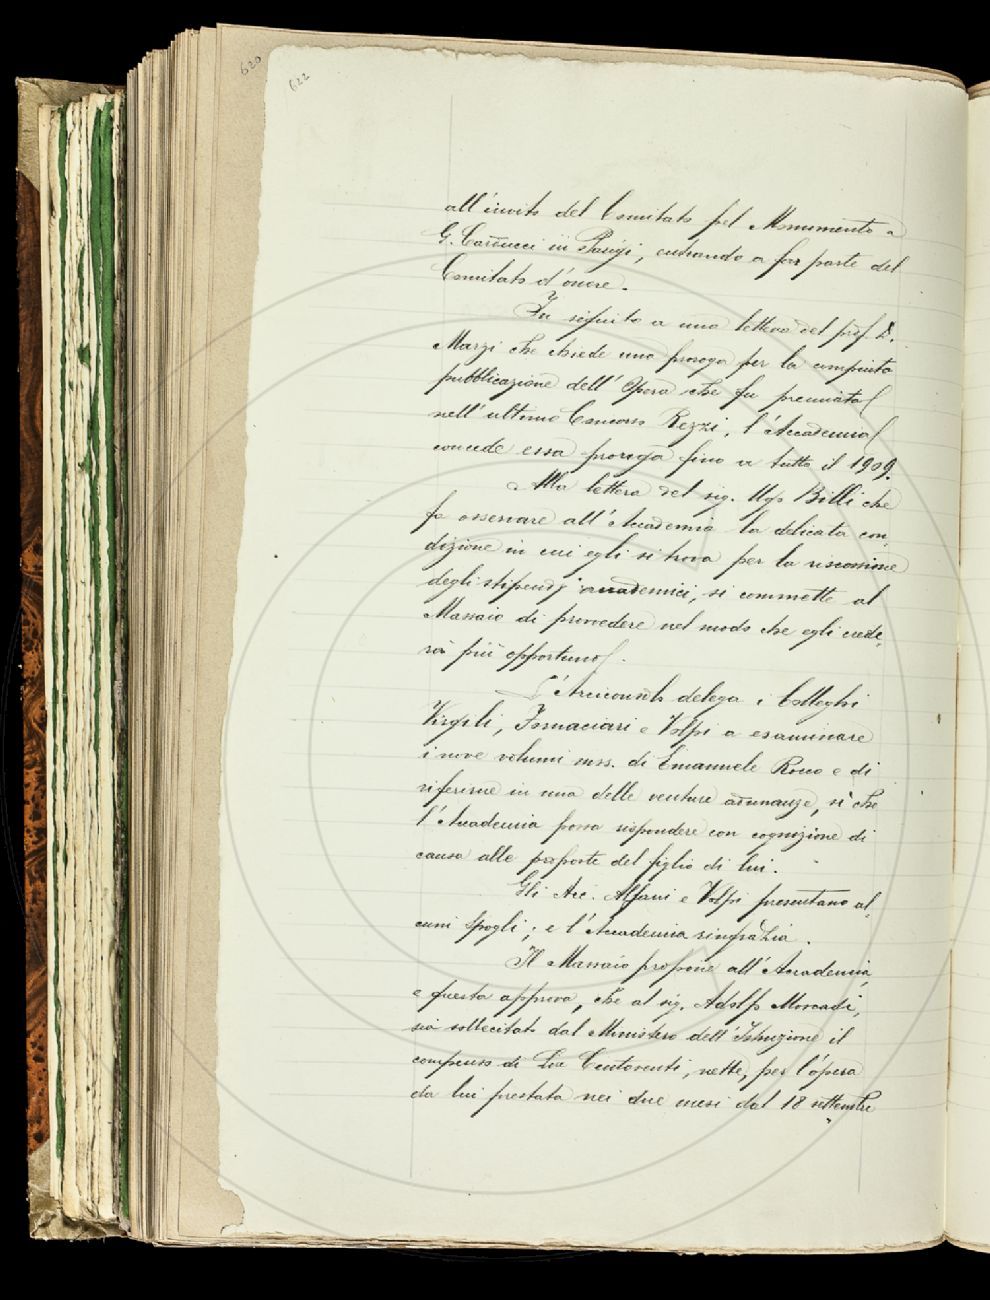 620
622
all'invito del Comitato pel Monumento a
G. Carducci in Parigi, entrando a far parte del
Comitato d'onore.
In seguito a una lettera del prof. D.
Marzi che chiede una proroga per la compiuta
pubblicazione dell'Opera che fu premiata
nell'ultimo Concorso Rezzi, l'Accademia
concede essa proroga fino a tutto il 1909.
Alla lettera del sig. Ugo Billi che
fa osservare all'Accademia la delicata con-
dizione in cui egli si trova per la riscossione
degli stipendj accademici, si commette al
Massaio di provvedere nel modo che egli crede-
rà più opportuno.
L'Arciconsolo delega i Colleghi
Virgili, Fornaciari e Volpi a esaminare
i nove volumi mss. di Emanuele Rocco e di
riferirne in una delle venture adunanze, sì che
l'Accademia possa rispondere con cognizione di
causa alle proposte del figlio di lui.
Gli Acc. Alfani e Volpi presentano al-
cuni spogli; e l'Accademia ringrazia.
Il Massaio propone all'Accademia,
e questa approva, che al sig. Adolfo
sia sollecitato dal Ministero dell'Istruzione il
compenso di Lire Centoventi, nette, per l'opera
da lui prestata nei due mesi dal 18 settembre